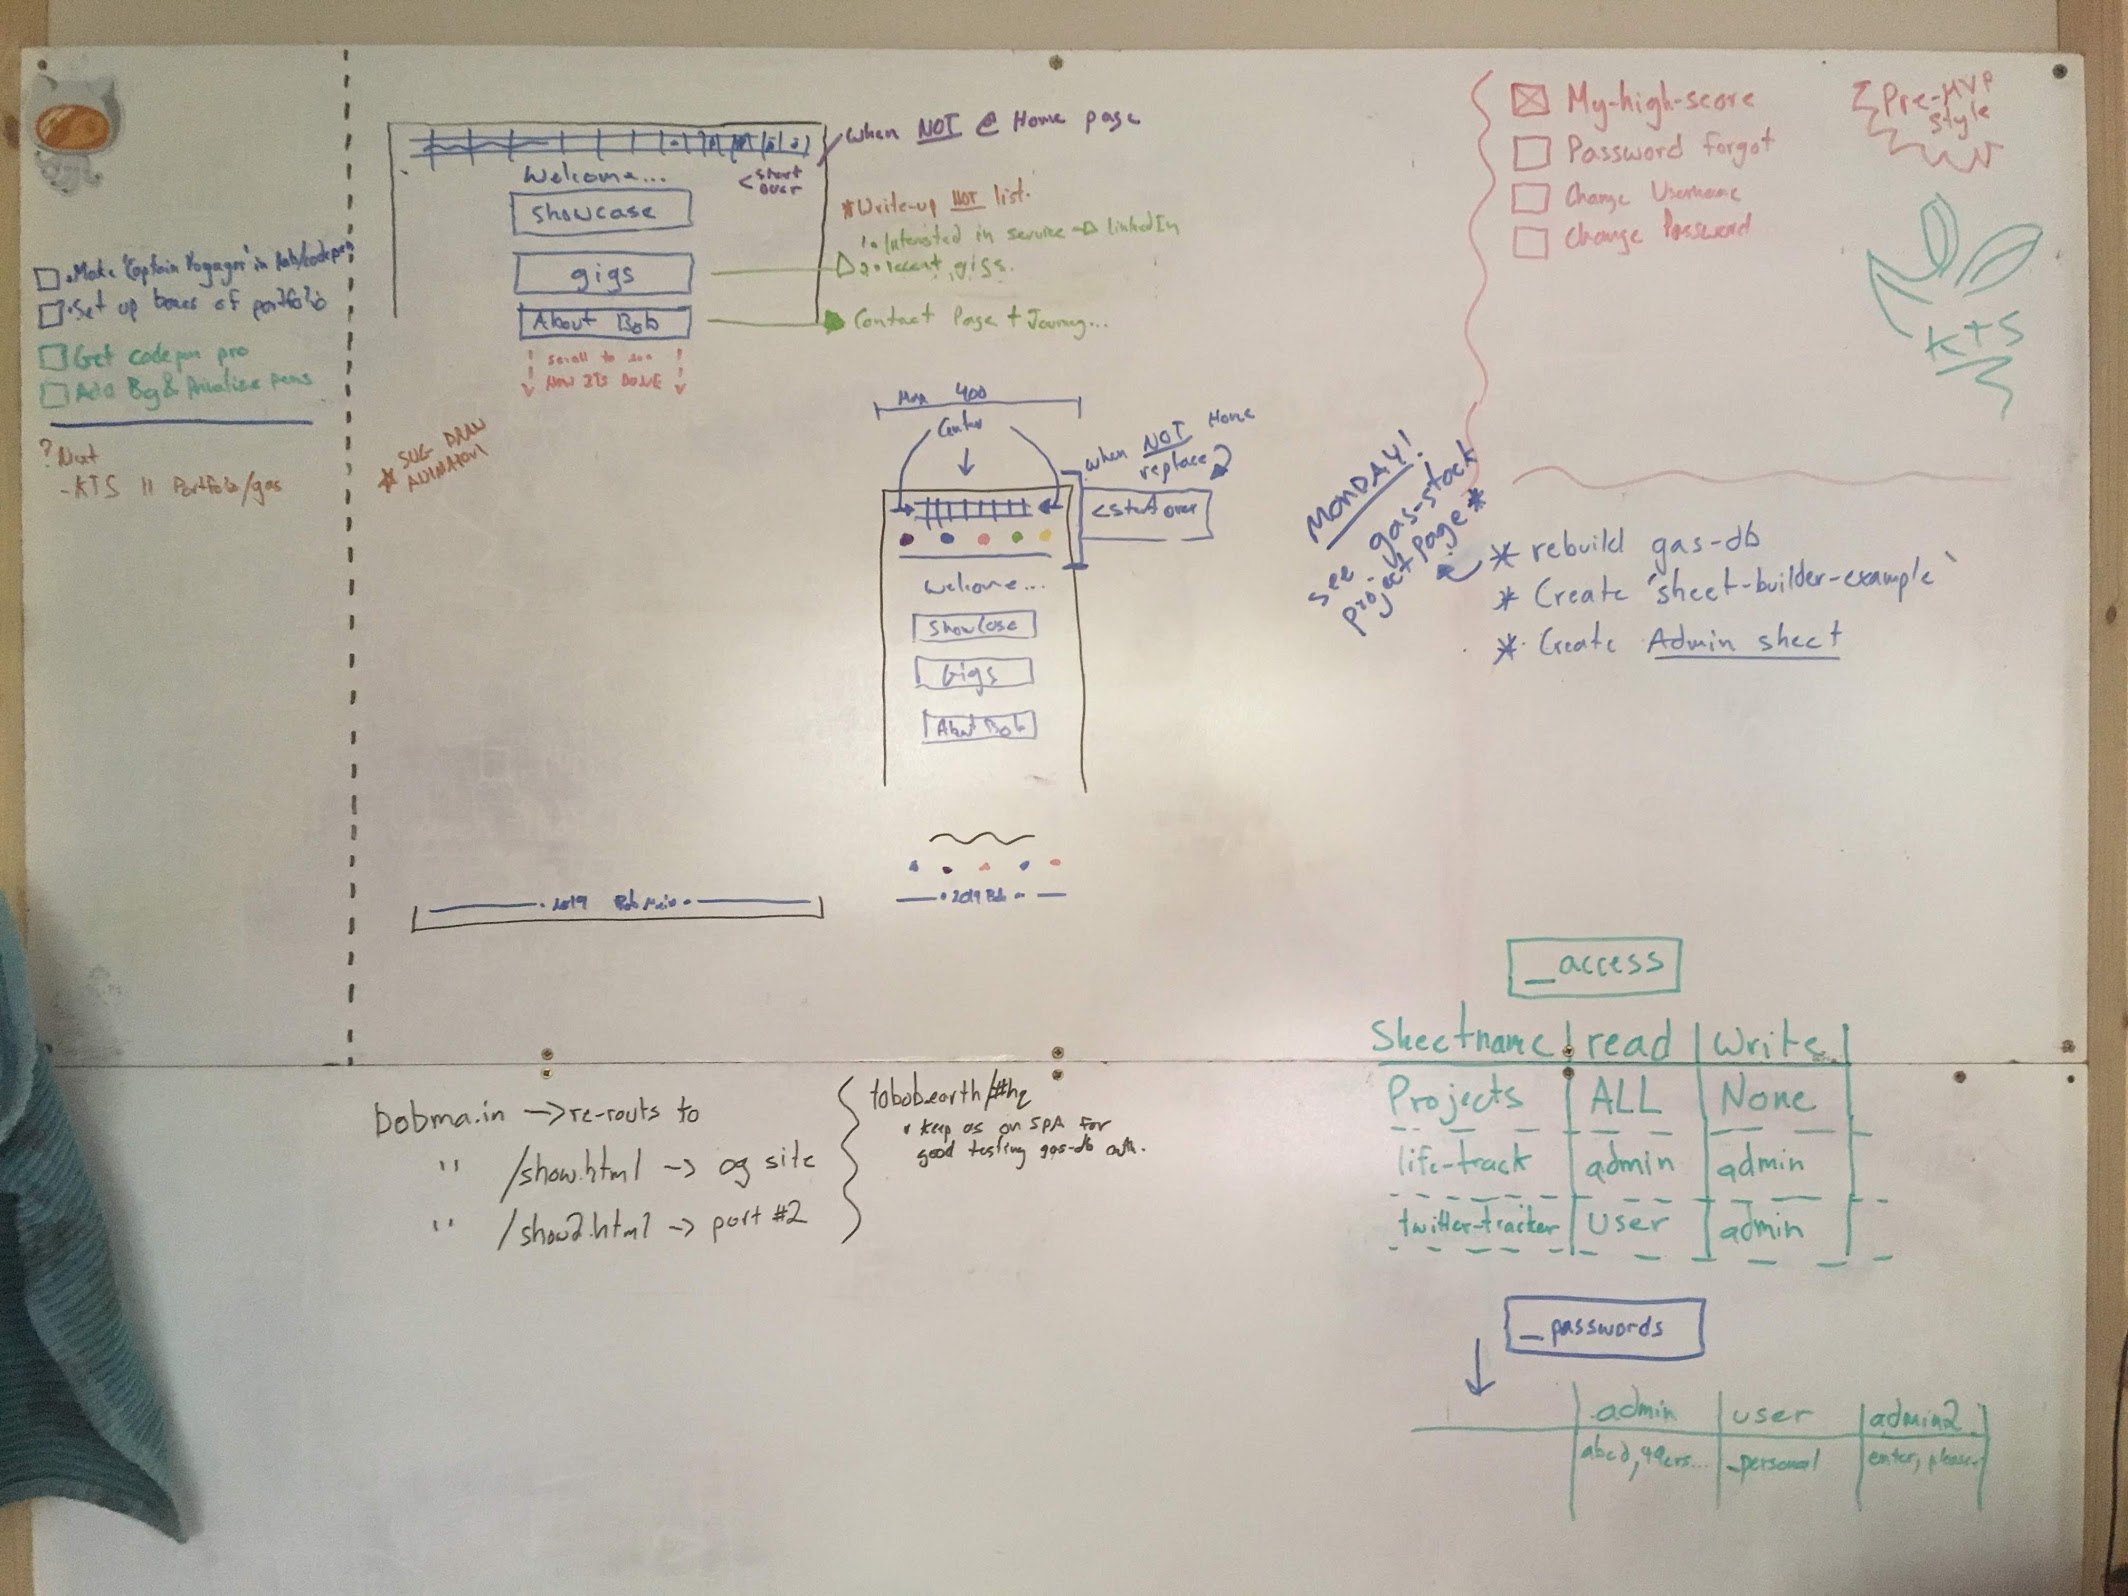 Make 'Captain Voyager' in lab/codepen
Set up boxes of portfolio
Get codepen pro
Add Bg & Privatize pens
? Next
- KTS || Portfolio/gas
When NOT @ Home page
Welcome...
< start over
showcase
gigs
About Bob
scroll to see
HOW ITS DONE
* Write-up NOT list.
Interested in service → linkedIn
recent gigs.
Contact Page + Journey...
* SVG DRAW
ANIMATION
Max 400
Center
when NOT Home
replace
< start over
Welcome...
Showcase
Gigs
About Bob
2019 Bob Main
2019 Bob
My-high-score
Password forgot
Change Username
Change Password
Pre-MVP
style
KTS
MONDAY!
see gas-stack
project page *
* rebuild gas-db
* Create 'sheet-builder-example'
* Create Admin sheet
bobma.in → re-routs to
" /show.html → og site
" /show2.html → port #2
tobob.earth/#hq
• keep as an SPA for
good testing gas-db auth.
_access
Sheetname | read | Write
Projects | ALL | None
life-track | admin | admin
twitter-tracker | user | admin
_passwords
admin | user | admin2
abcd, 49ers... | _personal | enter, please